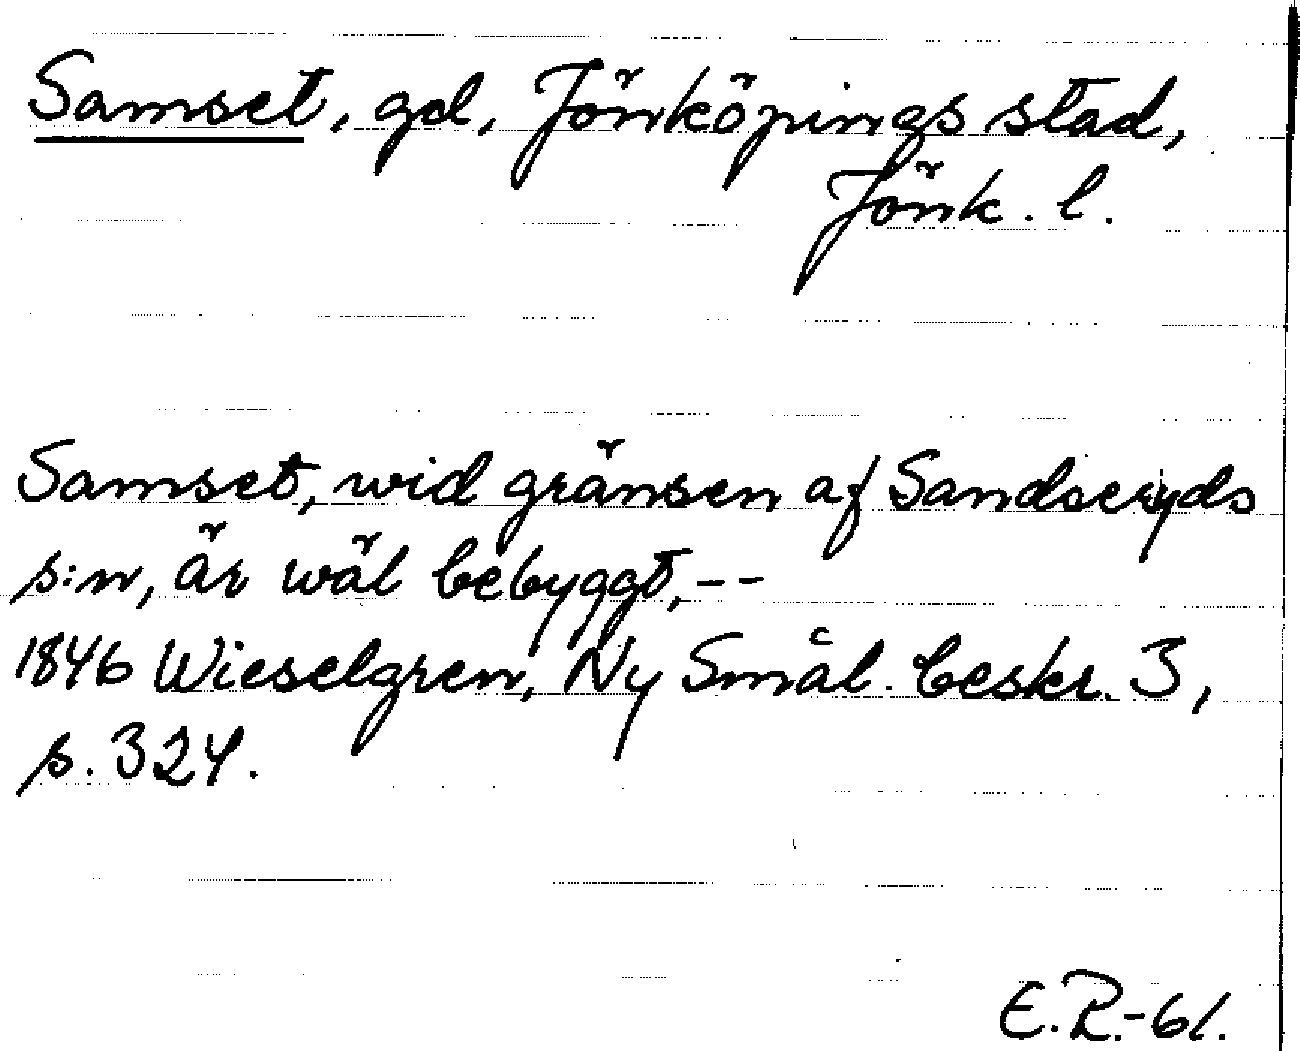 Samset, gd, Jönköpings stad,
Jönk. l.
Samset, wid gränsen af Sandseryds
s:n, är wäl bebyggt, --
1846 Wieselgren, Ny Smål. beskr. 3,
s. 324.
E.R.-61.